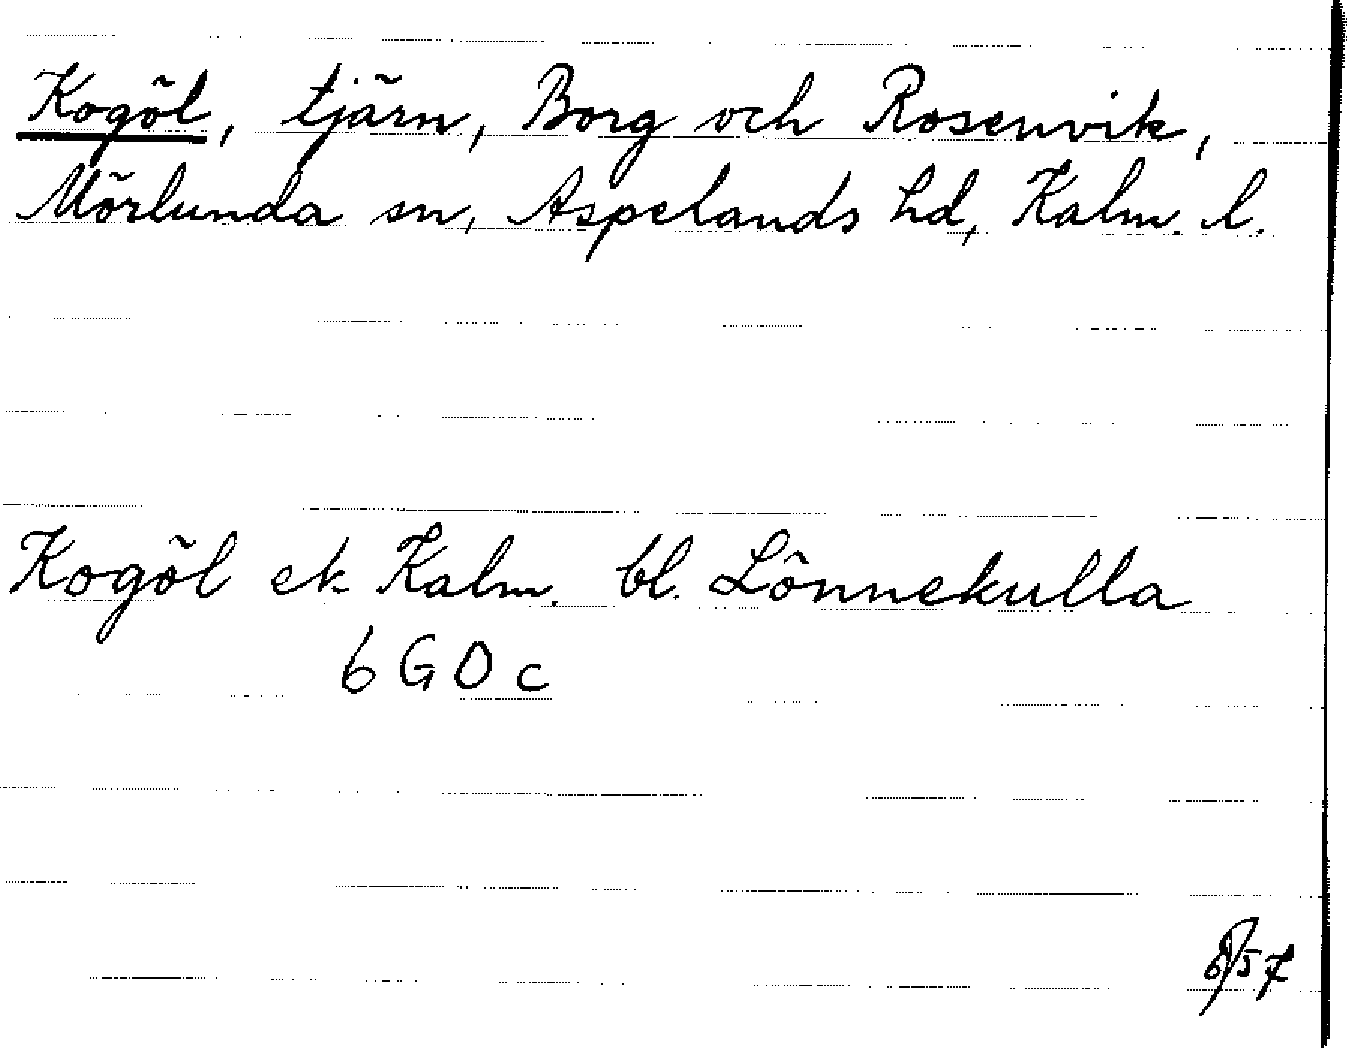 Kogöl, tjärn, Borg och Rosenvik,
Mörlunda sn, Aspelands hd, Kalm. l.
Kogöl ek Kalm. bl. Lönnekulla
6 G O c